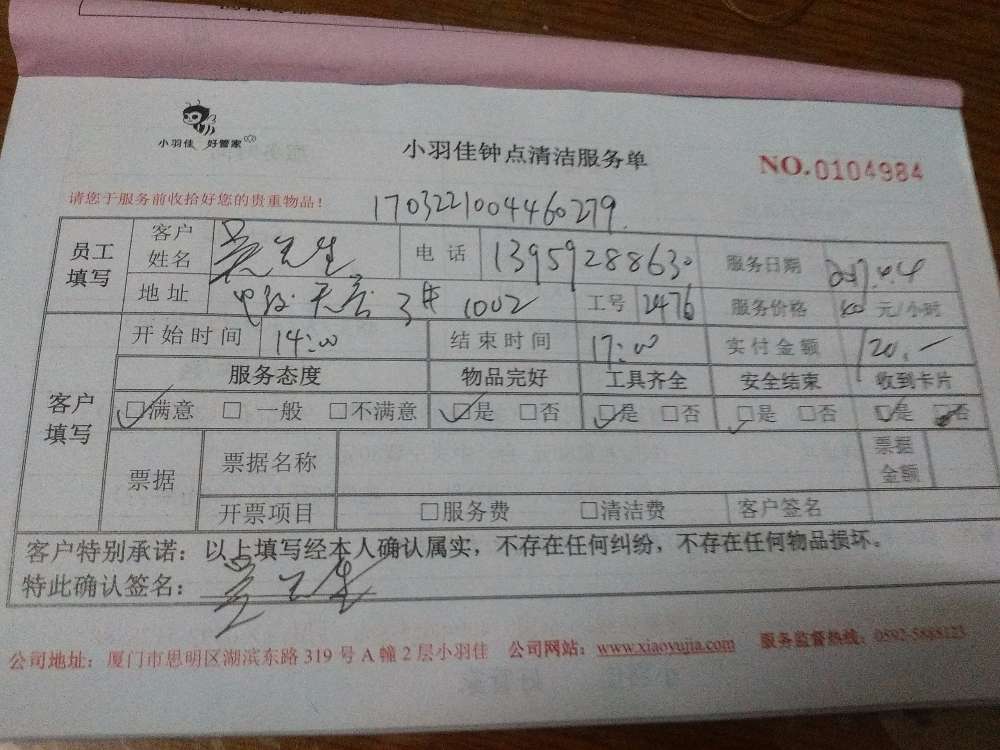 小羽佳 好管家
小羽佳钟点清洁服务单
NO.0104984
请您于服务前收拾好您的贵重物品！
1703221004460279
员工填写 客户姓名 先生 电话 13959288630 服务日期 2017.4.4
地址 天後 3# 1002 工号 2476 服务价格 40 元/小时
客户填写 开始时间 14:00 结束时间 17:00 实付金额 120.-
服务态度 物品完好 工具齐全 安全结束 收到卡片
☑满意 □一般 □不满意 ☑是 □否 ☑是 □否 ☑是 □否 □是 □否
票据 票据名称 票据金额
开票项目 □服务费 □清洁费 客户签名
客户特别承诺：以上填写经本人确认属实，不存在任何纠纷，不存在任何物品损坏。
特此确认签名： 先生
公司地址：厦门市思明区湖滨东路 319 号 A 幢 2 层小羽佳 公司网站：www.xiaoyujia.com 服务监督热线：0592-5888123